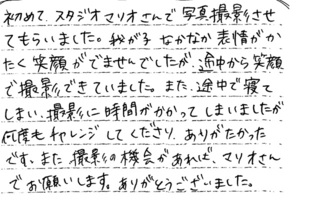 初めて スタジオマリオさんで 写真撮影させ
てもらいました。我が子 なかなか 表情がか
たく 笑顔 がでませんでしたが、途中から 笑顔
で撮影できていました。また、途中で 寝て
しまい、撮影に 時間がかかって しまいましたが
何度も チャレンジ してくださり、ありがたかった
です。また 撮影の 機会が あれば、マリオさん
でお願いします。ありがとうございました。